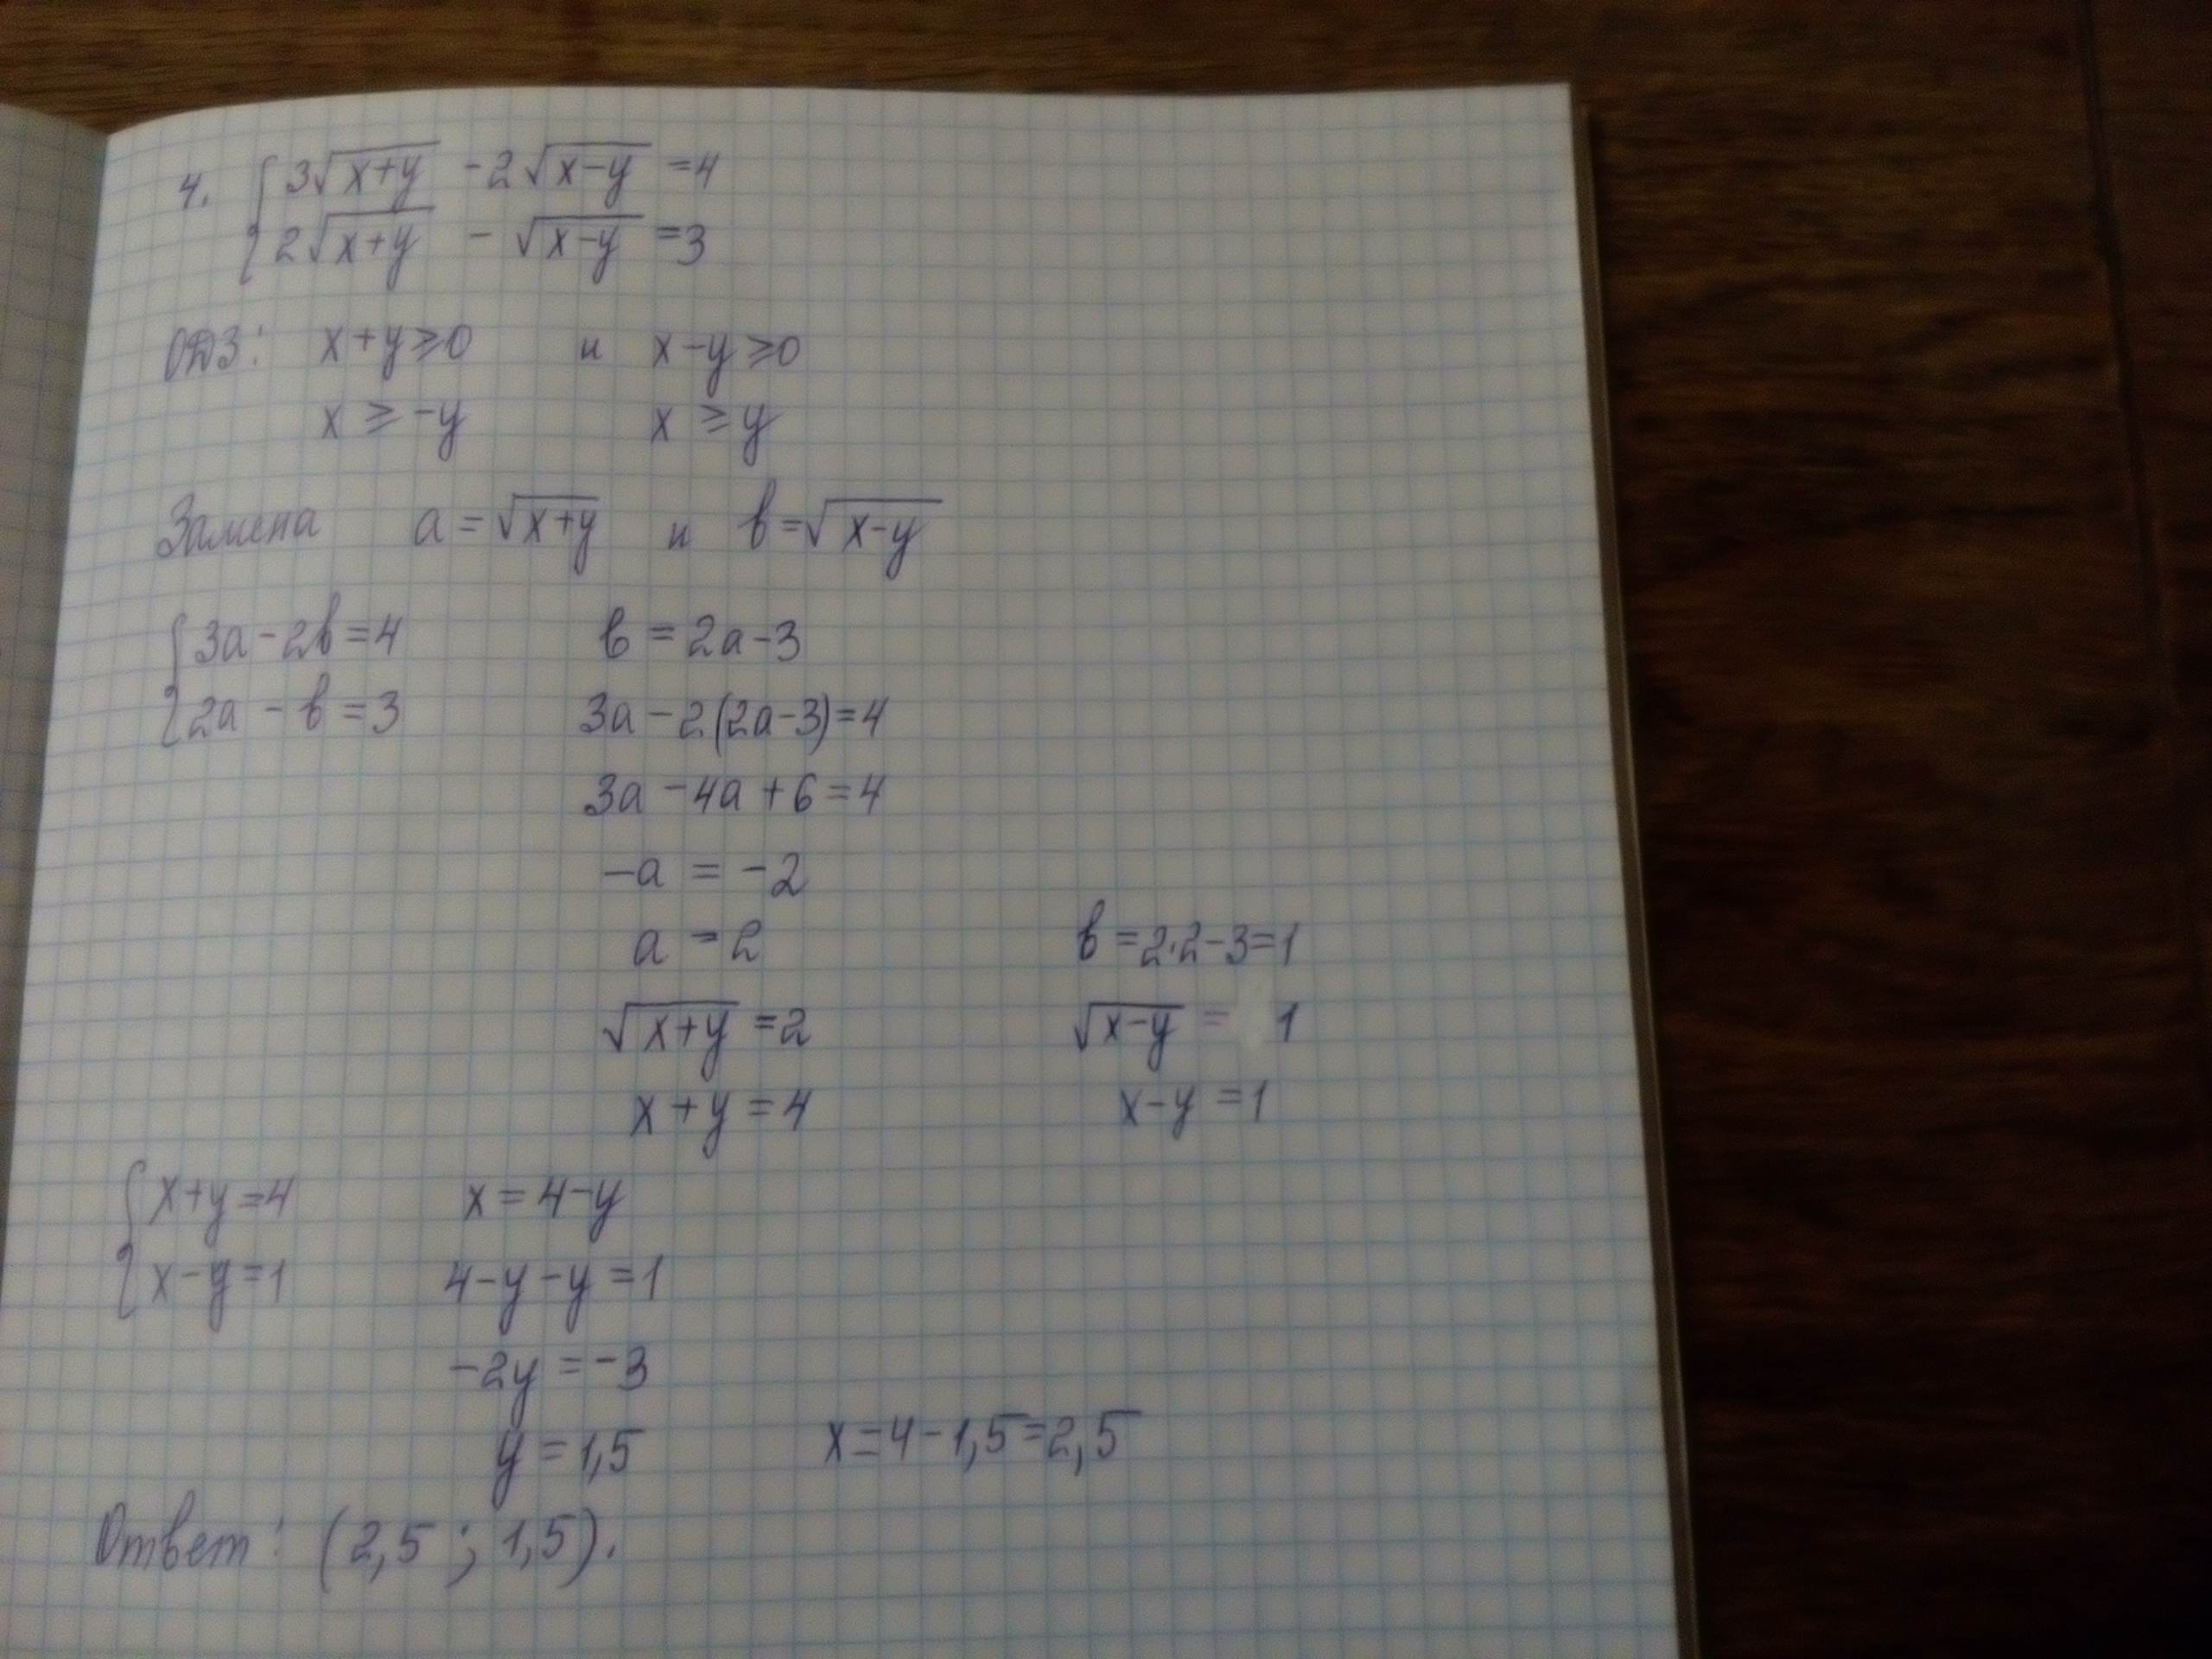 4. { 3√(x+y) - 2√(x-y) = 4
2√(x+y) - √(x-y) = 3
ОДЗ: x+y≥0 и x-y≥0
x ≥ -y x ≥ y
Замена a = √(x+y) и b = √(x-y)
{ 3a - 2b = 4 b = 2a - 3
2a - b = 3 3a - 2(2a-3) = 4
3a - 4a + 6 = 4
-a = -2
a = 2 b = 2·2-3=1
√(x+y) = 2 √(x-y) = 1
x+y = 4 x-y = 1
{ x+y=4 x = 4-y
x-y=1 4-y-y=1
-2y = -3
y = 1,5 x=4-1,5=2,5
Ответ: (2,5 ; 1,5).